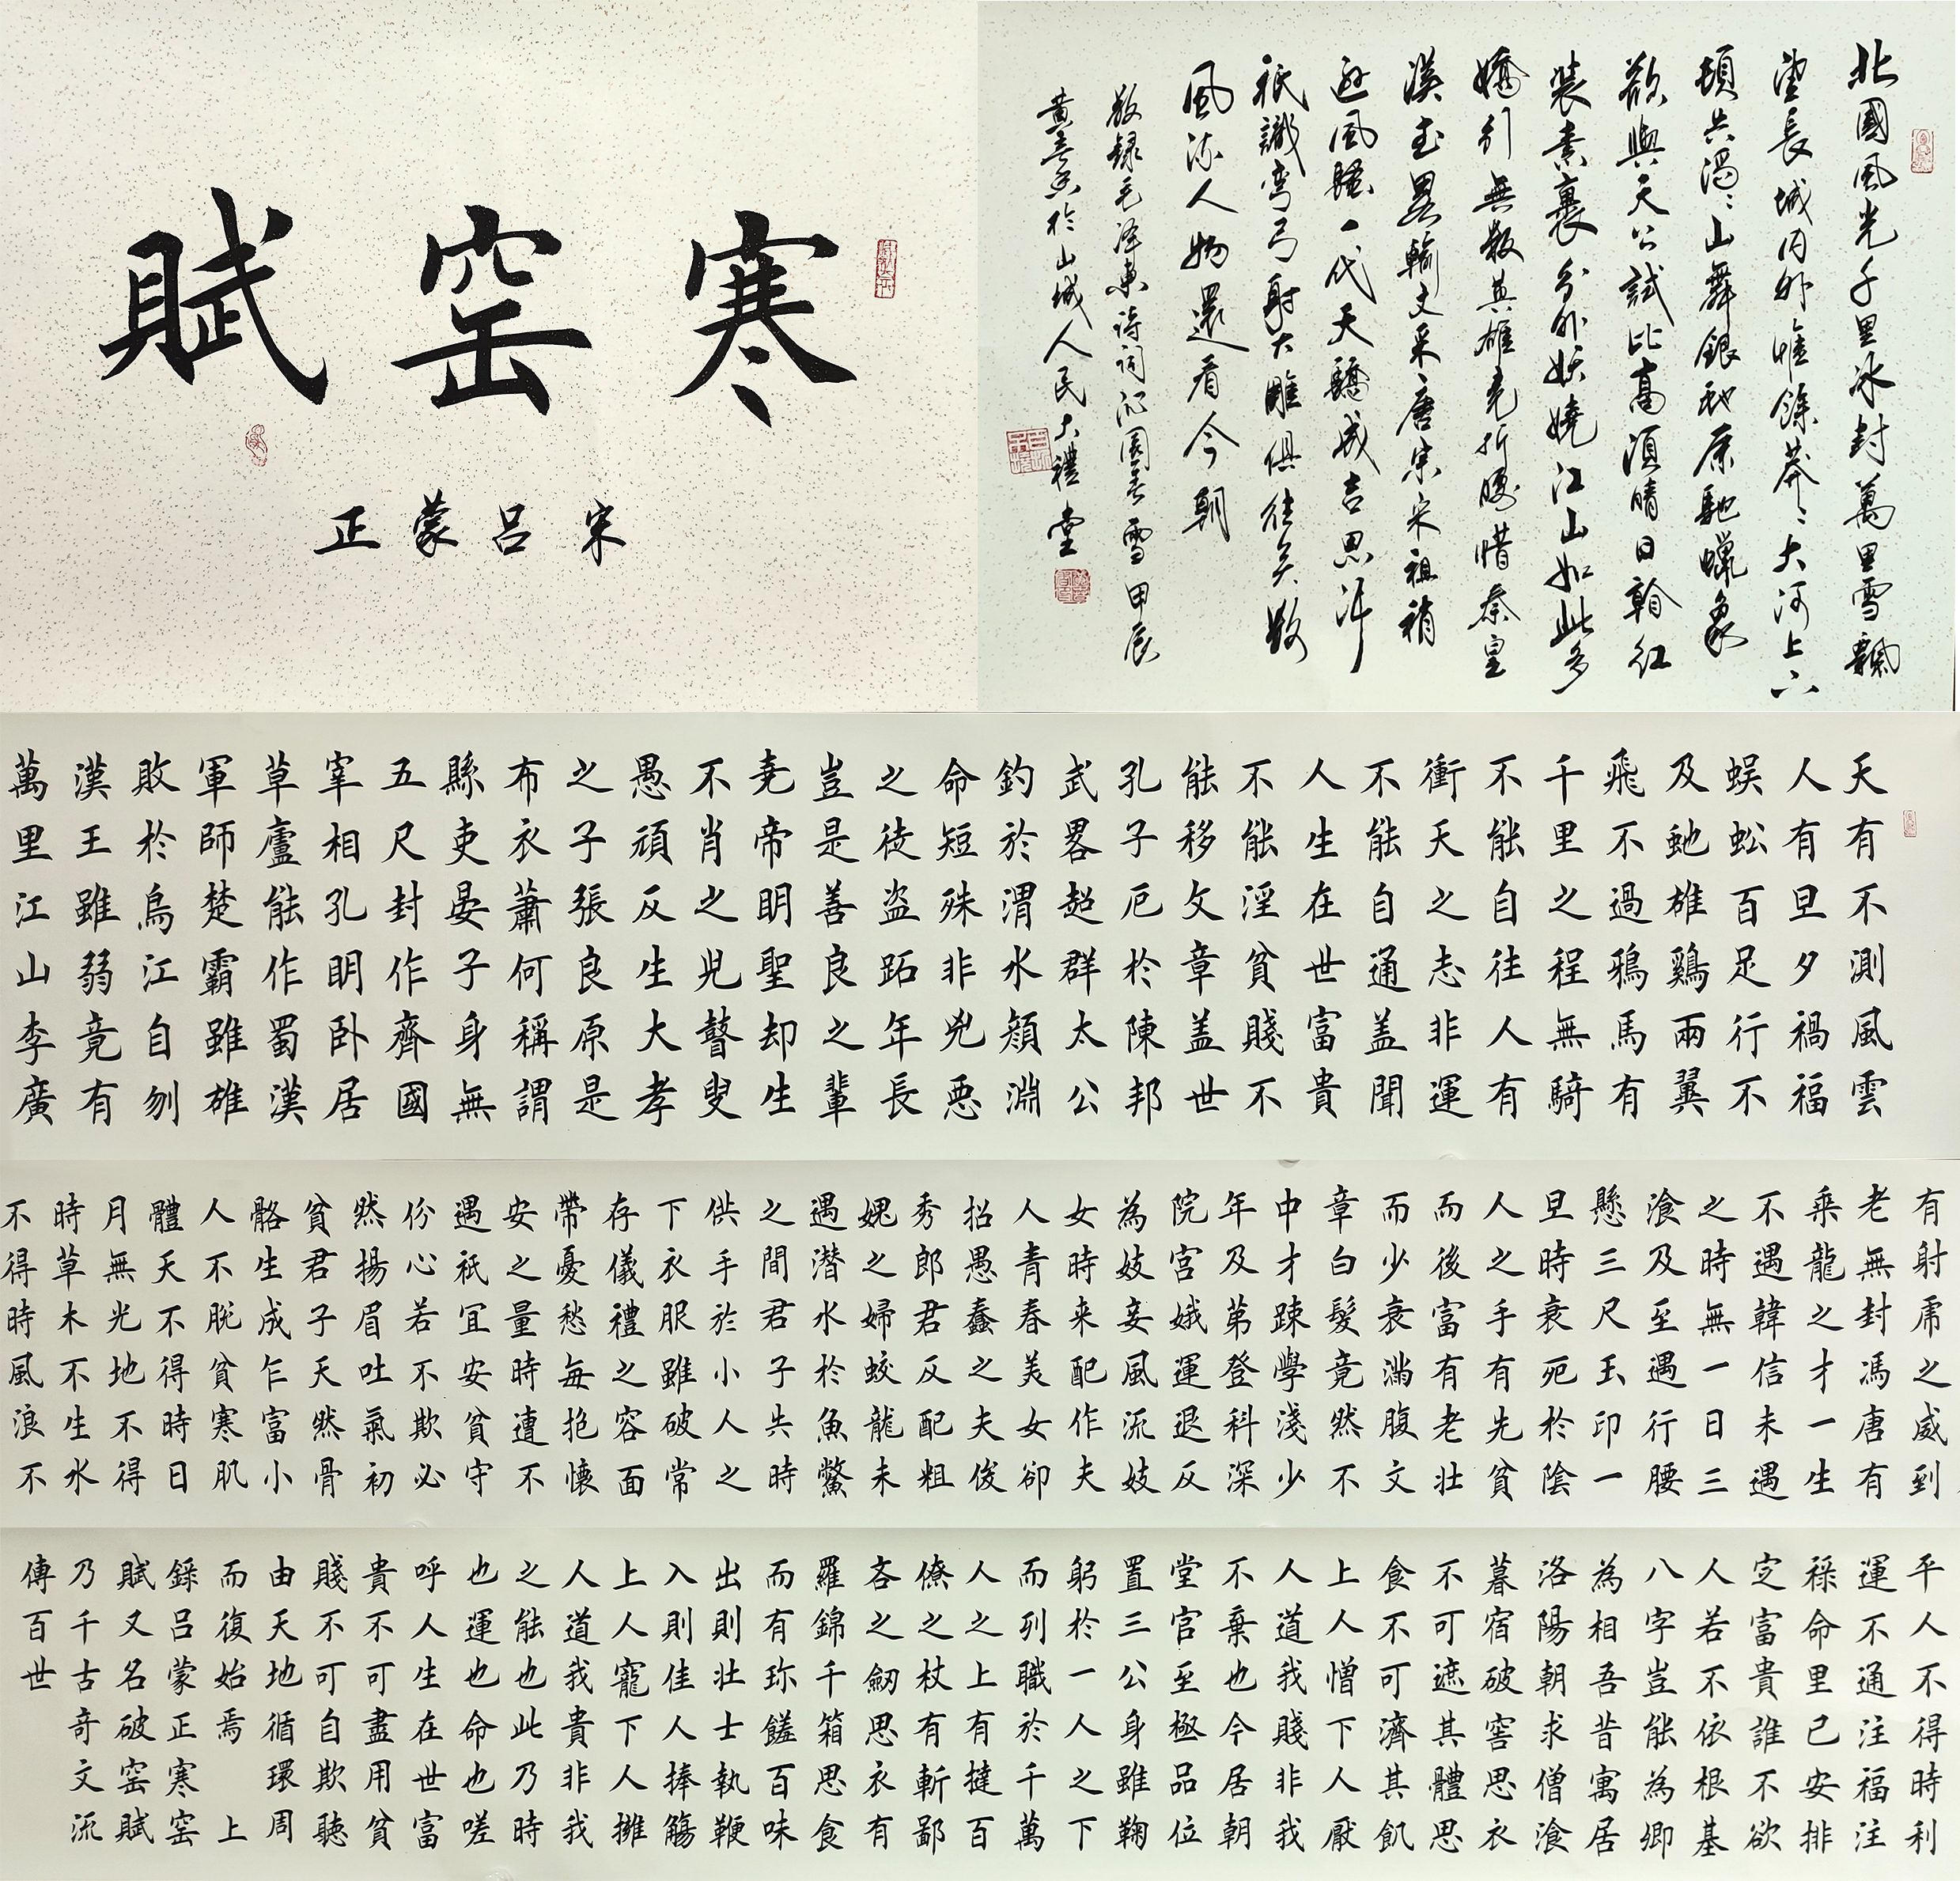 寒窑賦
宋吕蒙正
北國風光千里冰封萬里雪飄
望長城内外惟餘莽〻大河上下
頓失滔〻山舞銀蛇原馳蠟象
欲與天公試比高須晴日看紅
装素裹分外妖嬈江山如此多
嬌引無數英雄竞折腰惜秦皇
漢武畧輸文采唐宗宋祖稍
遜風騷一代天驕成吉思汗
衹識彎弓射大雕俱往矣數
風流人物還看今朝
敬録毛泽東詩詞沁園春雪甲辰
黄於山城人民大禮堂
天有不測風雲
人有旦夕禍福
蜈蚣百足行不
及虵雄鷄兩翼
飛不過鴉馬有
千里之程無騎
不能自往人有
衝天之志非運
不能自通盖聞
人生在世富貴
不能淫貧賤不
能移文章盖世
孔子厄於陳邦
武畧超群太公
釣於渭水顔淵
命短殊非兇惡
之徒盗跖年長
豈是善良之輩
堯帝明聖却生
不肖之兒瞽叟
愚頑反生大孝
之子張良原是
布衣蕭何稱謂
縣吏晏子身無
五尺封作齊國
宰相孔明卧居
草廬能作蜀漢
軍師楚霸雖雄
敗於烏江自刎
漢王雖弱竟有
萬里江山李廣
有射虎之威到
老無封馮唐有
乘龍之才一生
不遇韓信未遇
之時無一日三
飡及至遇行腰
懸三尺玉印一
旦時衰死於陰
人之手有先貧
而後富有老壯
而少衰滿腹文
章白髮竟然不
中才疎學淺少
年及第登科深
院宮娥運退反
為妓妾風流妓
女時来配作夫
人青春美女卻
招愚蠢之夫俊
秀郎君反配粗
媿之婦蛟龍未
遇潛水於魚鱉
之間君子失時
供手於小人之
下衣服雖破常
存儀禮之容面
帶憂愁每抱懷
安之量時遭不
遇衹宜安貧守
份心若不欺必
然揚眉吐氣初
貧君子天然骨
骼生成乍富小
人不脱貧寒肌
體天不得時日
月無光地不得
時草木不生水
不得時風浪不
平人不得時利
運不通注福注
禄命里已安排
定富貴誰不欲
人若不依根基
八字豈能為卿
為相吾昔寓居
洛陽朝求僧飡
暮宿破窖思衣
不可遮其體思
食不可濟其飢
上人憎下人厭
人道我賤非我
不棄也今居朝
堂官至極品位
置三公身雖鞠
躬於一人之下
而列職於千萬
人之上有撻百
僚之杖有斬鄙
吝之劒思衣有
羅錦千箱思食
而有珍饈百味
出則壮士執鞭
入則佳人捧觴
上人寵下人擁
人道我貴非我
之能也此乃時
也運也命也嗟
呼人生在世富
貴不可盡用貧
賤不可自欺聽
由天地循環周
而復始焉 上
録吕蒙正寒窑
賦又名破窑賦
乃千古奇文流
傳百世